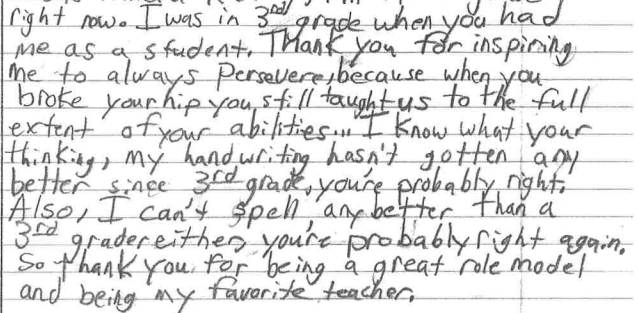 right now. I was in 3rd grade when you had
me as a student. Thank you for inspiring
me to always Persevere, because when you
broke your hip you still taught us to the full
extent of your abilities... I know what your
thinking, my handwriting hasn't gotten any
better since 3rd grade, you're probably right.
Also, I can't spell any better than a
3rd grader either, you're probably right again.
So thank you for being a great role model
and being my favorite teacher.